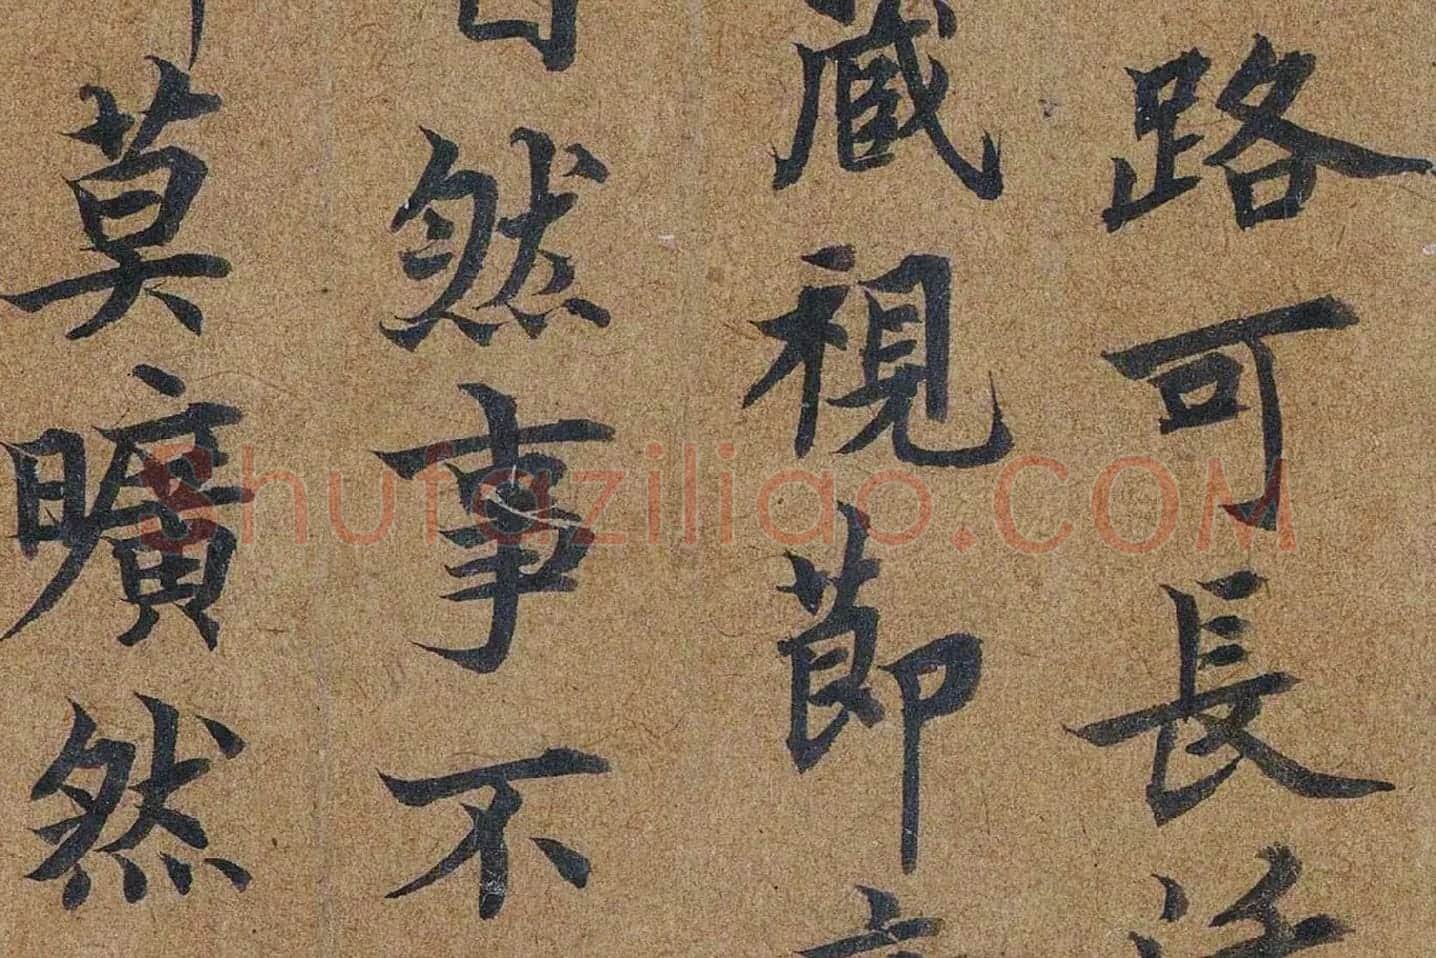 路可長活
藏視節
自然事不
莫曠然
shufaziliao.COM